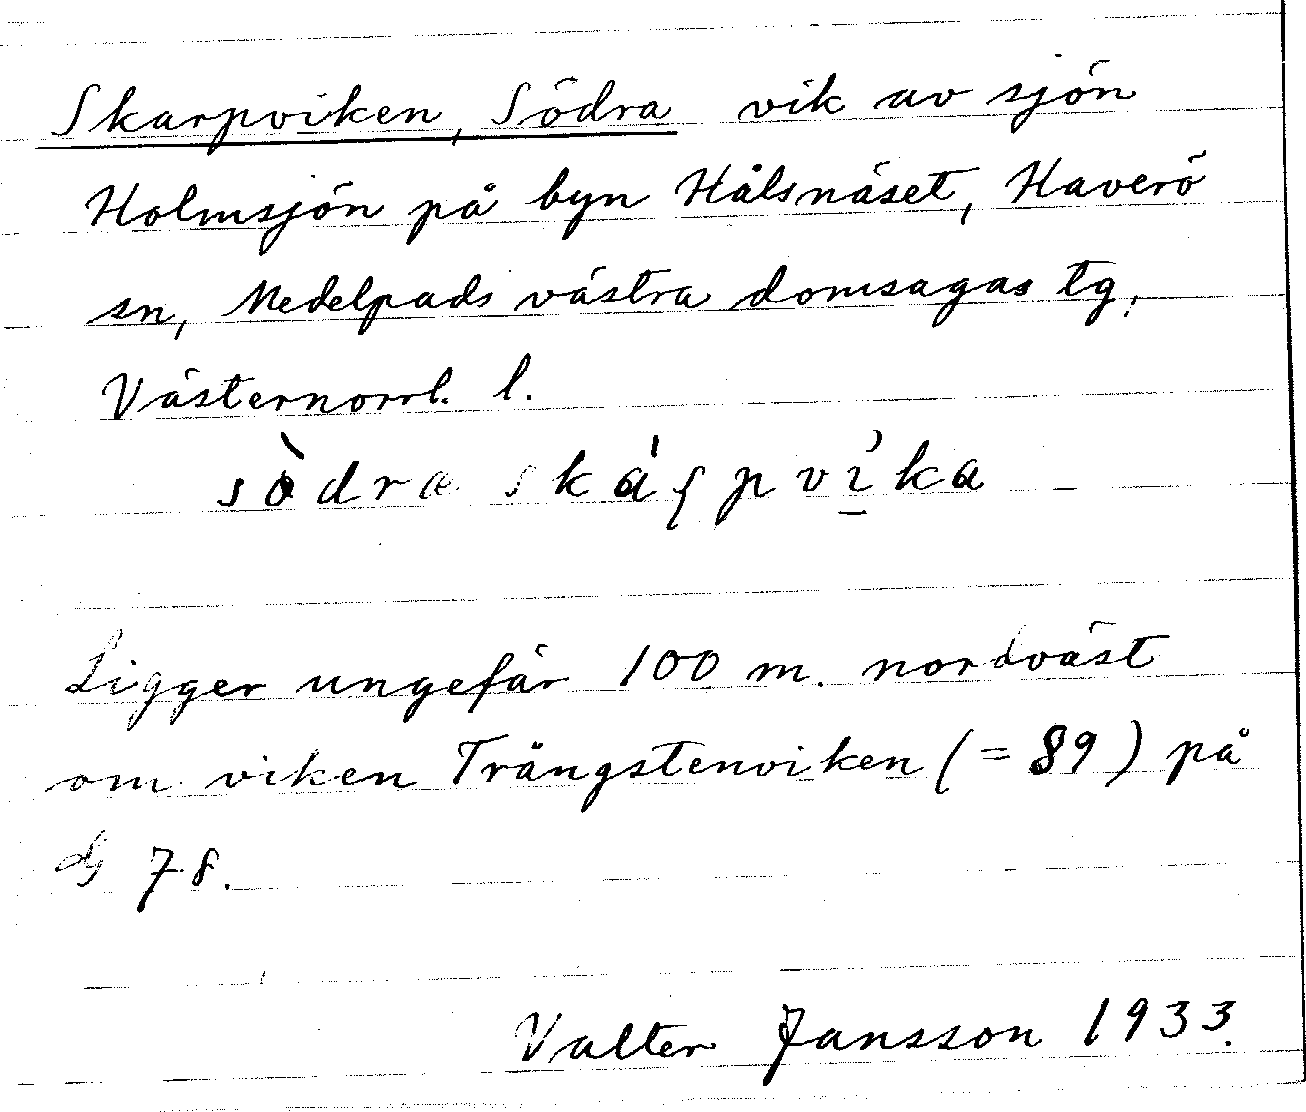 Skarpviken, Södra vik av sjön
Holmsjön på byn Hålsnäset, Haverö
sn, Medelpads västra domsagas tg.
Västernorrl. l.
sö̀dra ská pvi̲ka
Ligger ungefär 100 m. nordväst
om viken Trångstenviken (= 89) på
78.
Valter Jansson 1933.